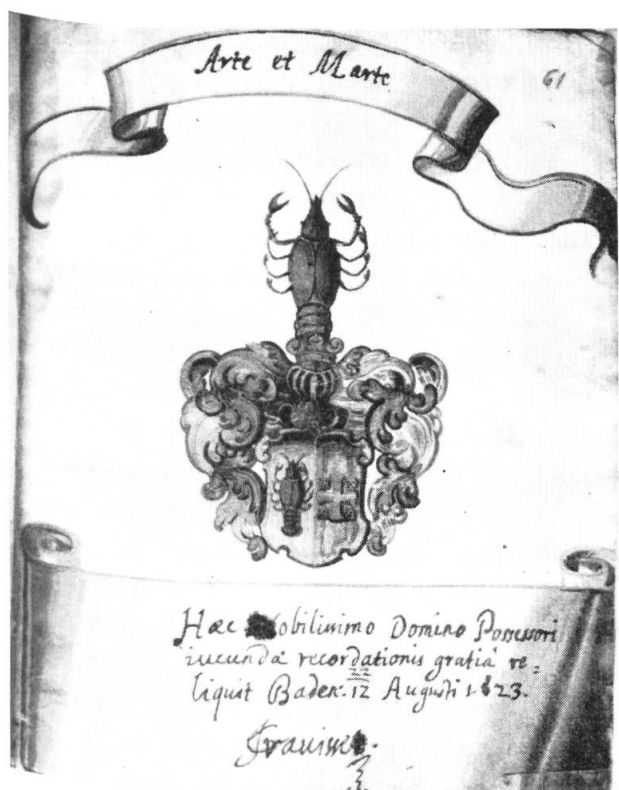 Arte et Marte
61
Hæc Nobilissimo Domino Possessori
iucundæ recordationis gratiâ re-
liquit Baden. 22/12 Augusti 1623.